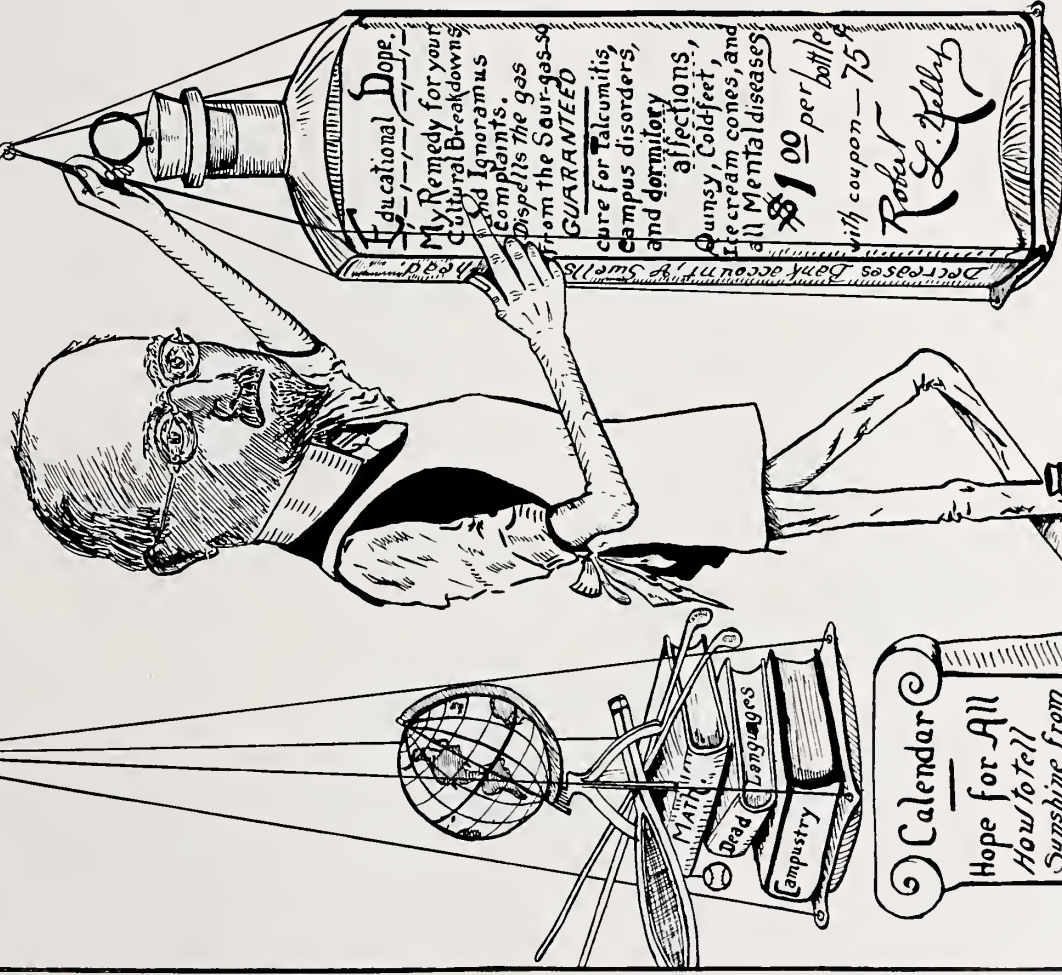 Educational Dope.
My Remedy for your
Cultural Breakdowns,
and Ignoramus
Complaints.
Dispells the gas
from the Sour-gas-so
GUARANTEED
cure for Talcumitis,
Campus disorders,
and dormitory
affections
Quinsy Coldfeet,
Ice cream cones, and
all Mental diseases
$1 00 per bottle
with coupon — 75¢
Robert
L. Kelly
Decreases Bank account, & Swells head
Math.
Dead Languages
Campustry
Calendar
Hope for All
How to tell
Sunshine from